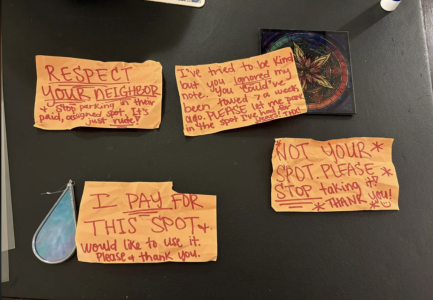 RESPECT
YOUR NEIGHBOR
& Stop parking in their
paid, assigned spot. It's
just rude!
I've tried to be kind
but you ignored my
note. You could've
been towed > a week
ago. PLEASE let me park
in the spot I've had for
years! THX!
*NOT YOUR*
SPOT. PLEASE *
STOP taking it!
* THANK YOU!
I PAY FOR
THIS SPOT &
would like to use it.
Please & thank you.